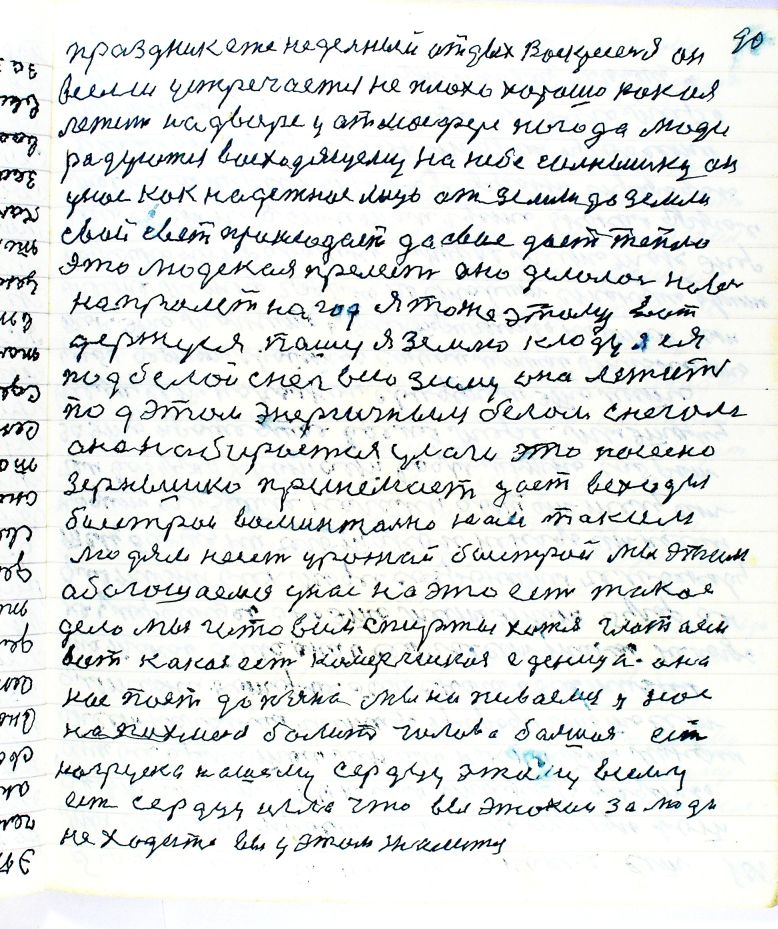 90
праздник еже неделный отдых Воскресеня он
всеми устречаетя не плохо хорошо какая
лежит надворе у атмосфере погода люди
радуютя восходящему на небе солнышку он
унас как надежное лицо от земли до земли
свой свет прикладает до свае дает тепло
это людская прелест оно делалос
напролет на год я тоже этому вот
держуся пашу я землю кладу я ея
под белой снег всю зиму она лежит
под этом энергичным белом снегом
она набираетя
зернышко принемает дает всходы
быстрои нам таким
людям несет урожай быстрой мы этим
абагощаемя унас на это ест такое
дело мы готовим спирты хотя глотаем
вот какая ест комерчиская еденица она
нас поят допяна мы напиваемя у нас
на пахмеля балит голова балшая ест
нагруска нашему сердцу этому всему
ест сердцу что вы этокои за люди
находите вы у этом